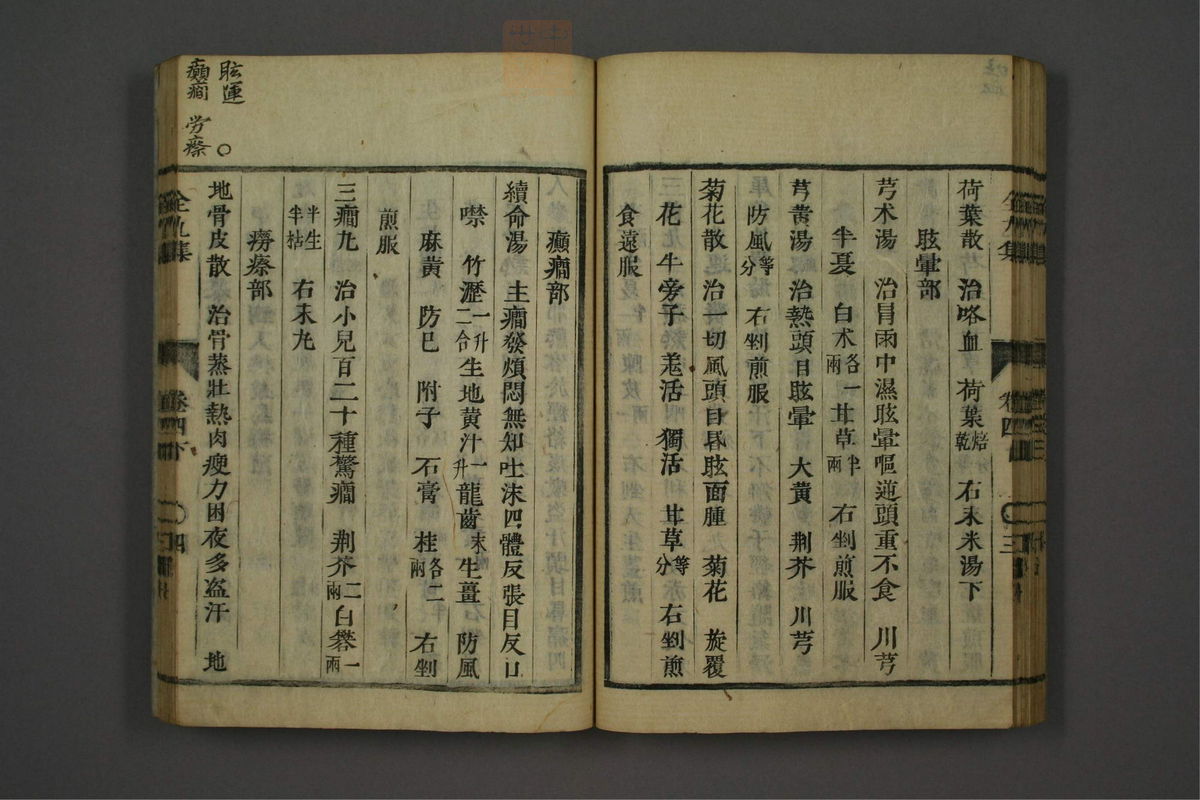 荷葉散 治咯血 荷葉焙乾 右末米湯下
眩暈部
芎朮湯 治冒雨中濕眩暈嘔逆頭重不食 川芎
半夏 白朮各一兩 甘草半兩 右剉煎服
芎黃湯 治熱頭目眩暈 大黃 荆芥 川芎
防風等分 右剉煎服
菊花散 治一切風頭目昏眩面腫 菊花 旋覆
花 牛旁子 羗活 獨活 甘草等分 右剉煎
食遠服
卷四下
三
眩運
癲癇
労瘵
癲癇部
續命湯 主癇發煩悶無知吐沫四體反張目反口
噤 竹瀝一升二合 生地黃汁一升 龍齒末 生薑 防風
麻黃 防已 附子 石膏 桂各二兩 右剉
煎服
三癇丸 治小兒百二十種驚癇 荆芥二兩 白礬一兩
半生半枯 右末丸
癆瘵部
地骨皮散 治骨蒸壯熱肉瘦力困夜多盗汗 地
全九集
卷四下
四